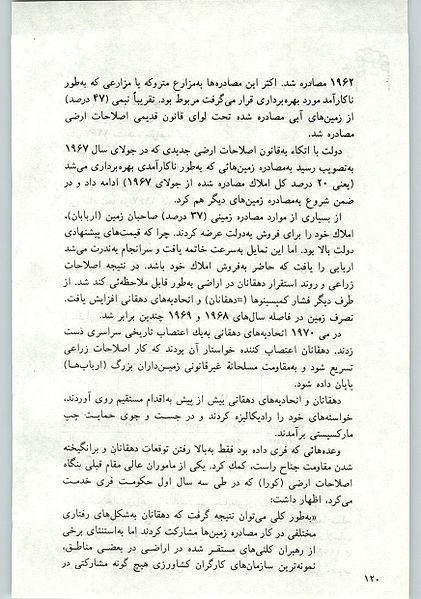 ۱۹۶۲ مصادره شد. اکثر این مصادره‌ها به‌مزارع متروکه یا مزارعی که به‌طور
ناکارآمد مورد بهره‌برداری قرار می‌گرفت مربوط بود. تقریباً نیمی (۴۷ درصد)
از زمین‌های آبی مصادره شده تحت لوای قانون قدیمی اصلاحات ارضی
مصادره شد.
دولت با اتکاء به‌قانون اصلاحات ارضی جدیدی که در جولای سال ۱۹۶۷
به‌تصویب رسید به‌مصادره زمین‌هائی که به‌طور ناکارآمدی بهره‌برداری می‌شد
(یعنی ۲۰ درصد کل املاك مصادره شده از جولای ۱۹۶۷) ادامه داد و در
ضمن شروع به‌مصادره زمین‌های دیگر هم کرد.
از بسیاری از موارد مصادره زمینی (۳۷ درصد) صاحبان زمین (اربابان)،
املاك خود را برای فروش به‌دولت عرضه کردند. چرا که قیمت‌های پیشنهادی
دولت بالا بود. اما این تمایل به‌سرعت خاتمه یافت و سرانجام به‌ندرت می‌شد
اربابی را یافت که حاضر به‌فروش املاك خود باشد. در نتیجه اصلاحات
زراعی و روند استقرار دهقانان در اراضی به‌طور قابل ملاحظه‌ئی کند شد. از
طرف دیگر فشار کمپسینوها (=دهقانان) و اتحادیه‌های دهقانی افزایش یافت.
تصرف زمین در فاصله سال‌های ۱۹۶۸ و ۱۹۶۹ چندین برابر شد.
در می ۱۹۷۰ اتحادیه‌های دهقانی به‌یك اعتصاب تاریخی سراسری دست
زدند. دهقانان اعتصاب کننده خواستار آن بودند که کار اصلاحات زراعی
تسریع شود و به‌مقاومت مسلحانهٔ غیرقانونی زمین‌داران بزرگ (ارباب‌ها)
پایان داده شود.
دهقانان و اتحادیه‌های دهقانی بیش از پیش به‌اقدام مستقیم روی آوردند،
خواسته‌های خود را رادیکالیزه کردند و در جست و جوی حمایت چپ
مارکسیستی برآمدند.
وعده‌هائی که فری داده بود فقط به‌بالا رفتن توقعات دهقانان و برانگیخته
شدن مقاومت جناح راست، کمك کرد. یکی از ماموران عالی مقام قبلی بنگاه
اصلاحات ارضی (کورا) که در طی سه سال اول حکومت فری خدمت
می‌کرد، اظهار داشت:
«به‌طور کلی می‌توان نتیجه گرفت که دهقانان به‌شکل‌های رفتاری
مختلفی در کار مصادره زمین‌ها مشارکت کردند اما به‌استثنای برخی
از رهبران کلنی‌های مستقر شده در اراضی در بعضی مناطق،
نمونه‌ترین سازمان‌های کارگران کشاورزی هیچ گونه مشارکتی در
۱۲۰